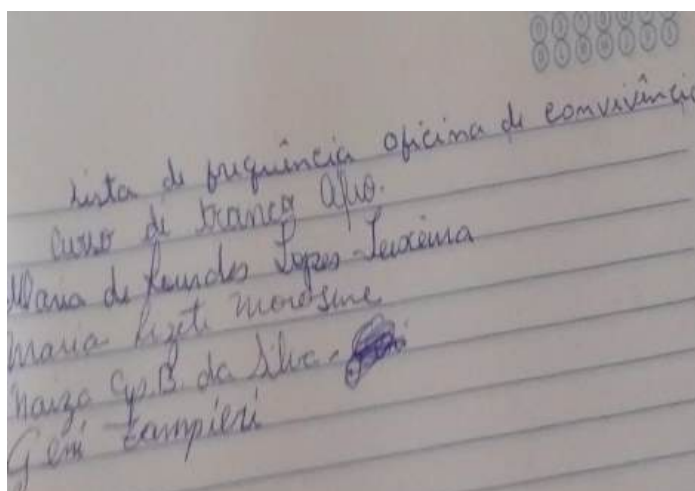 Lista de frequência oficina de convivência
Curso de trança afro.
Maria de Lourdes Lopes Teixeira
Maria Lizete
da Silva
Geni Zampieri